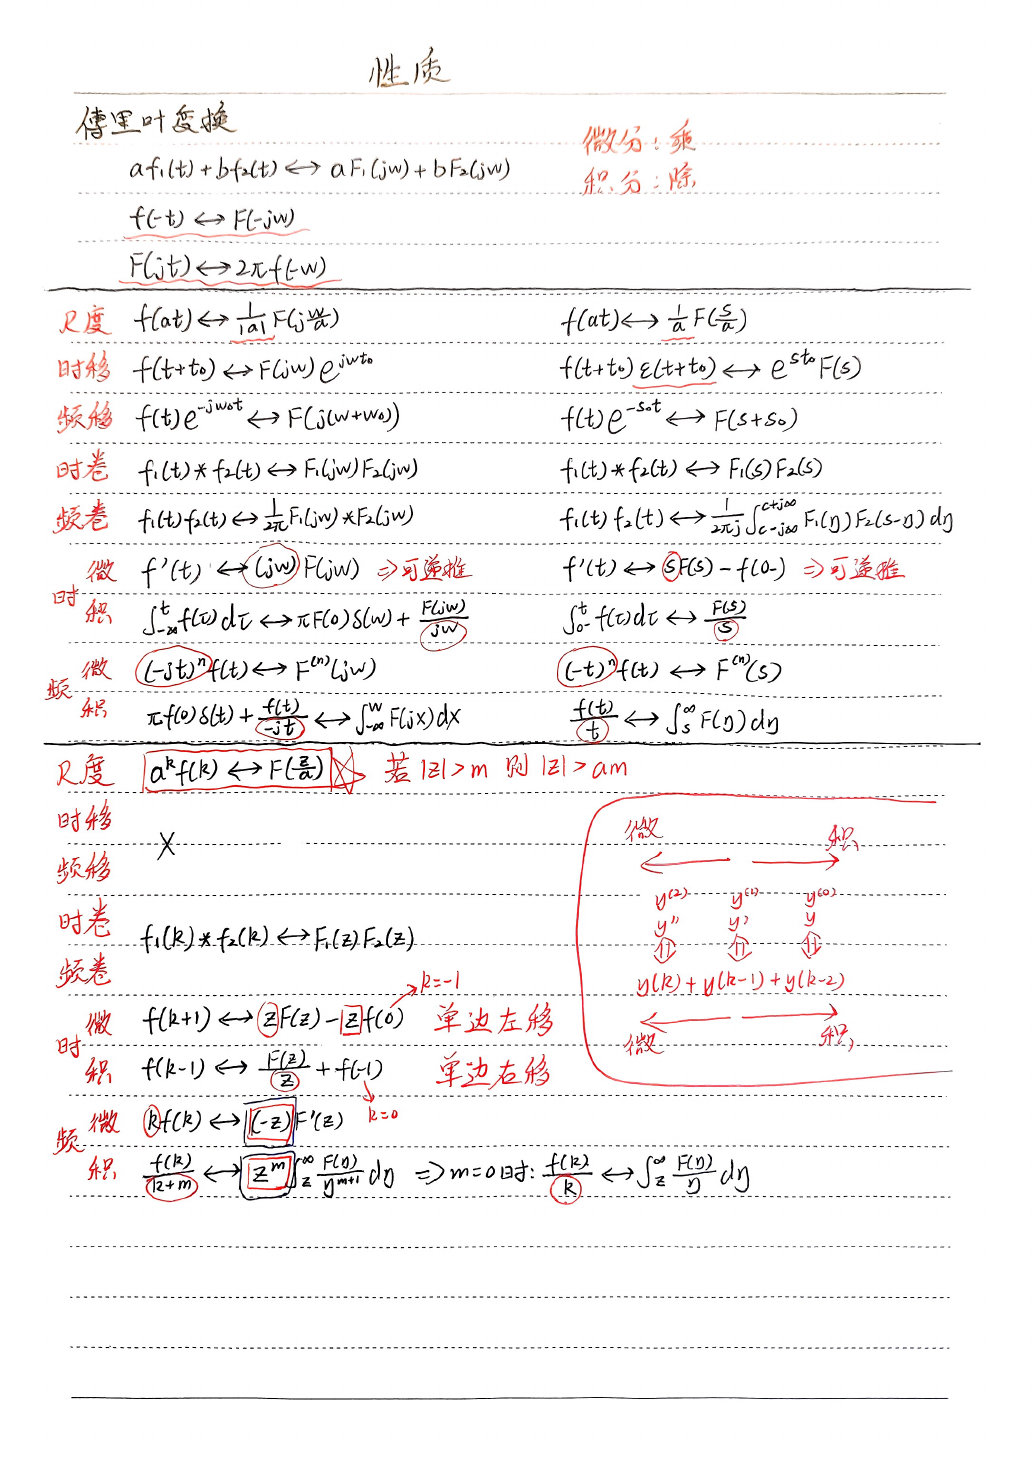 性质
傅里叶变换
微分：乘
af₁(t)+bf₂(t)↔aF₁(jw)+bF₂(jw)
积分：除
f(-t)↔F(-jw)
F(jt)↔2πf(-w)
尺度 f(at)↔1/|a| F(j w/a) f(at)↔1/a F(s/a)
时移 f(t+t₀)↔F(jw)e^{jwt₀} f(t+t₀)ε(t+t₀)↔e^{st₀}F(s)
频移 f(t)e^{-jw₀t}↔F(j(w+w₀)) f(t)e^{-s₀t}↔F(s+s₀)
时卷 f₁(t)*f₂(t)↔F₁(jw)F₂(jw) f₁(t)*f₂(t)↔F₁(s)F₂(s)
频卷 f₁(t)f₂(t)↔1/2π F₁(jw)*F₂(jw) f₁(t)f₂(t)↔1/2πj ∫_{c-j∞}^{c+j∞} F₁(η)F₂(s-η)dη
时 微 f'(t)↔(jw)F(jw) ⇒可递推 f'(t)↔sF(s)-f(0-) ⇒可递推
积 ∫_{-∞}^{t} f(τ)dτ↔πF(0)δ(w)+F(jw)/jw ∫_{0-}^{t} f(τ)dτ↔F(s)/s
频 微 (-jt)ⁿf(t)↔F⁽ⁿ⁾(jw) (-t)ⁿf(t)↔F⁽ⁿ⁾(s)
积 πf(0)δ(t)+f(t)/-jt↔∫_{-∞}^{w} F(jx)dx f(t)/t↔∫_{s}^{∞} F(η)dη
尺度 aᵏf(k)↔F(z/a) ☆ 若|z|>m 则|z|>am
时移
频移
X
时卷
频卷
f₁(k)*f₂(k)↔F₁(z)F₂(z)
时 微 f(k+1)↔zF(z)-zf(0) 单边左移
k=-1
积 f(k-1)↔F(z)/z+f(-1) 单边右移
k=0
频 微 kf(k)↔(-z)F'(z)
积 f(k)/k+m↔zᵐ∫_{z}^{∞} F(η)/η^{m+1} dη ⇒m=0时: f(k)/k↔∫_{z}^{∞} F(η)/η dη
微 积
← →
y⁽²⁾ y⁽¹⁾ y⁽⁰⁾
y'' y' y
⇕ ⇕ ⇕
y(k)+y(k-1)+y(k-2)
← →
微 积